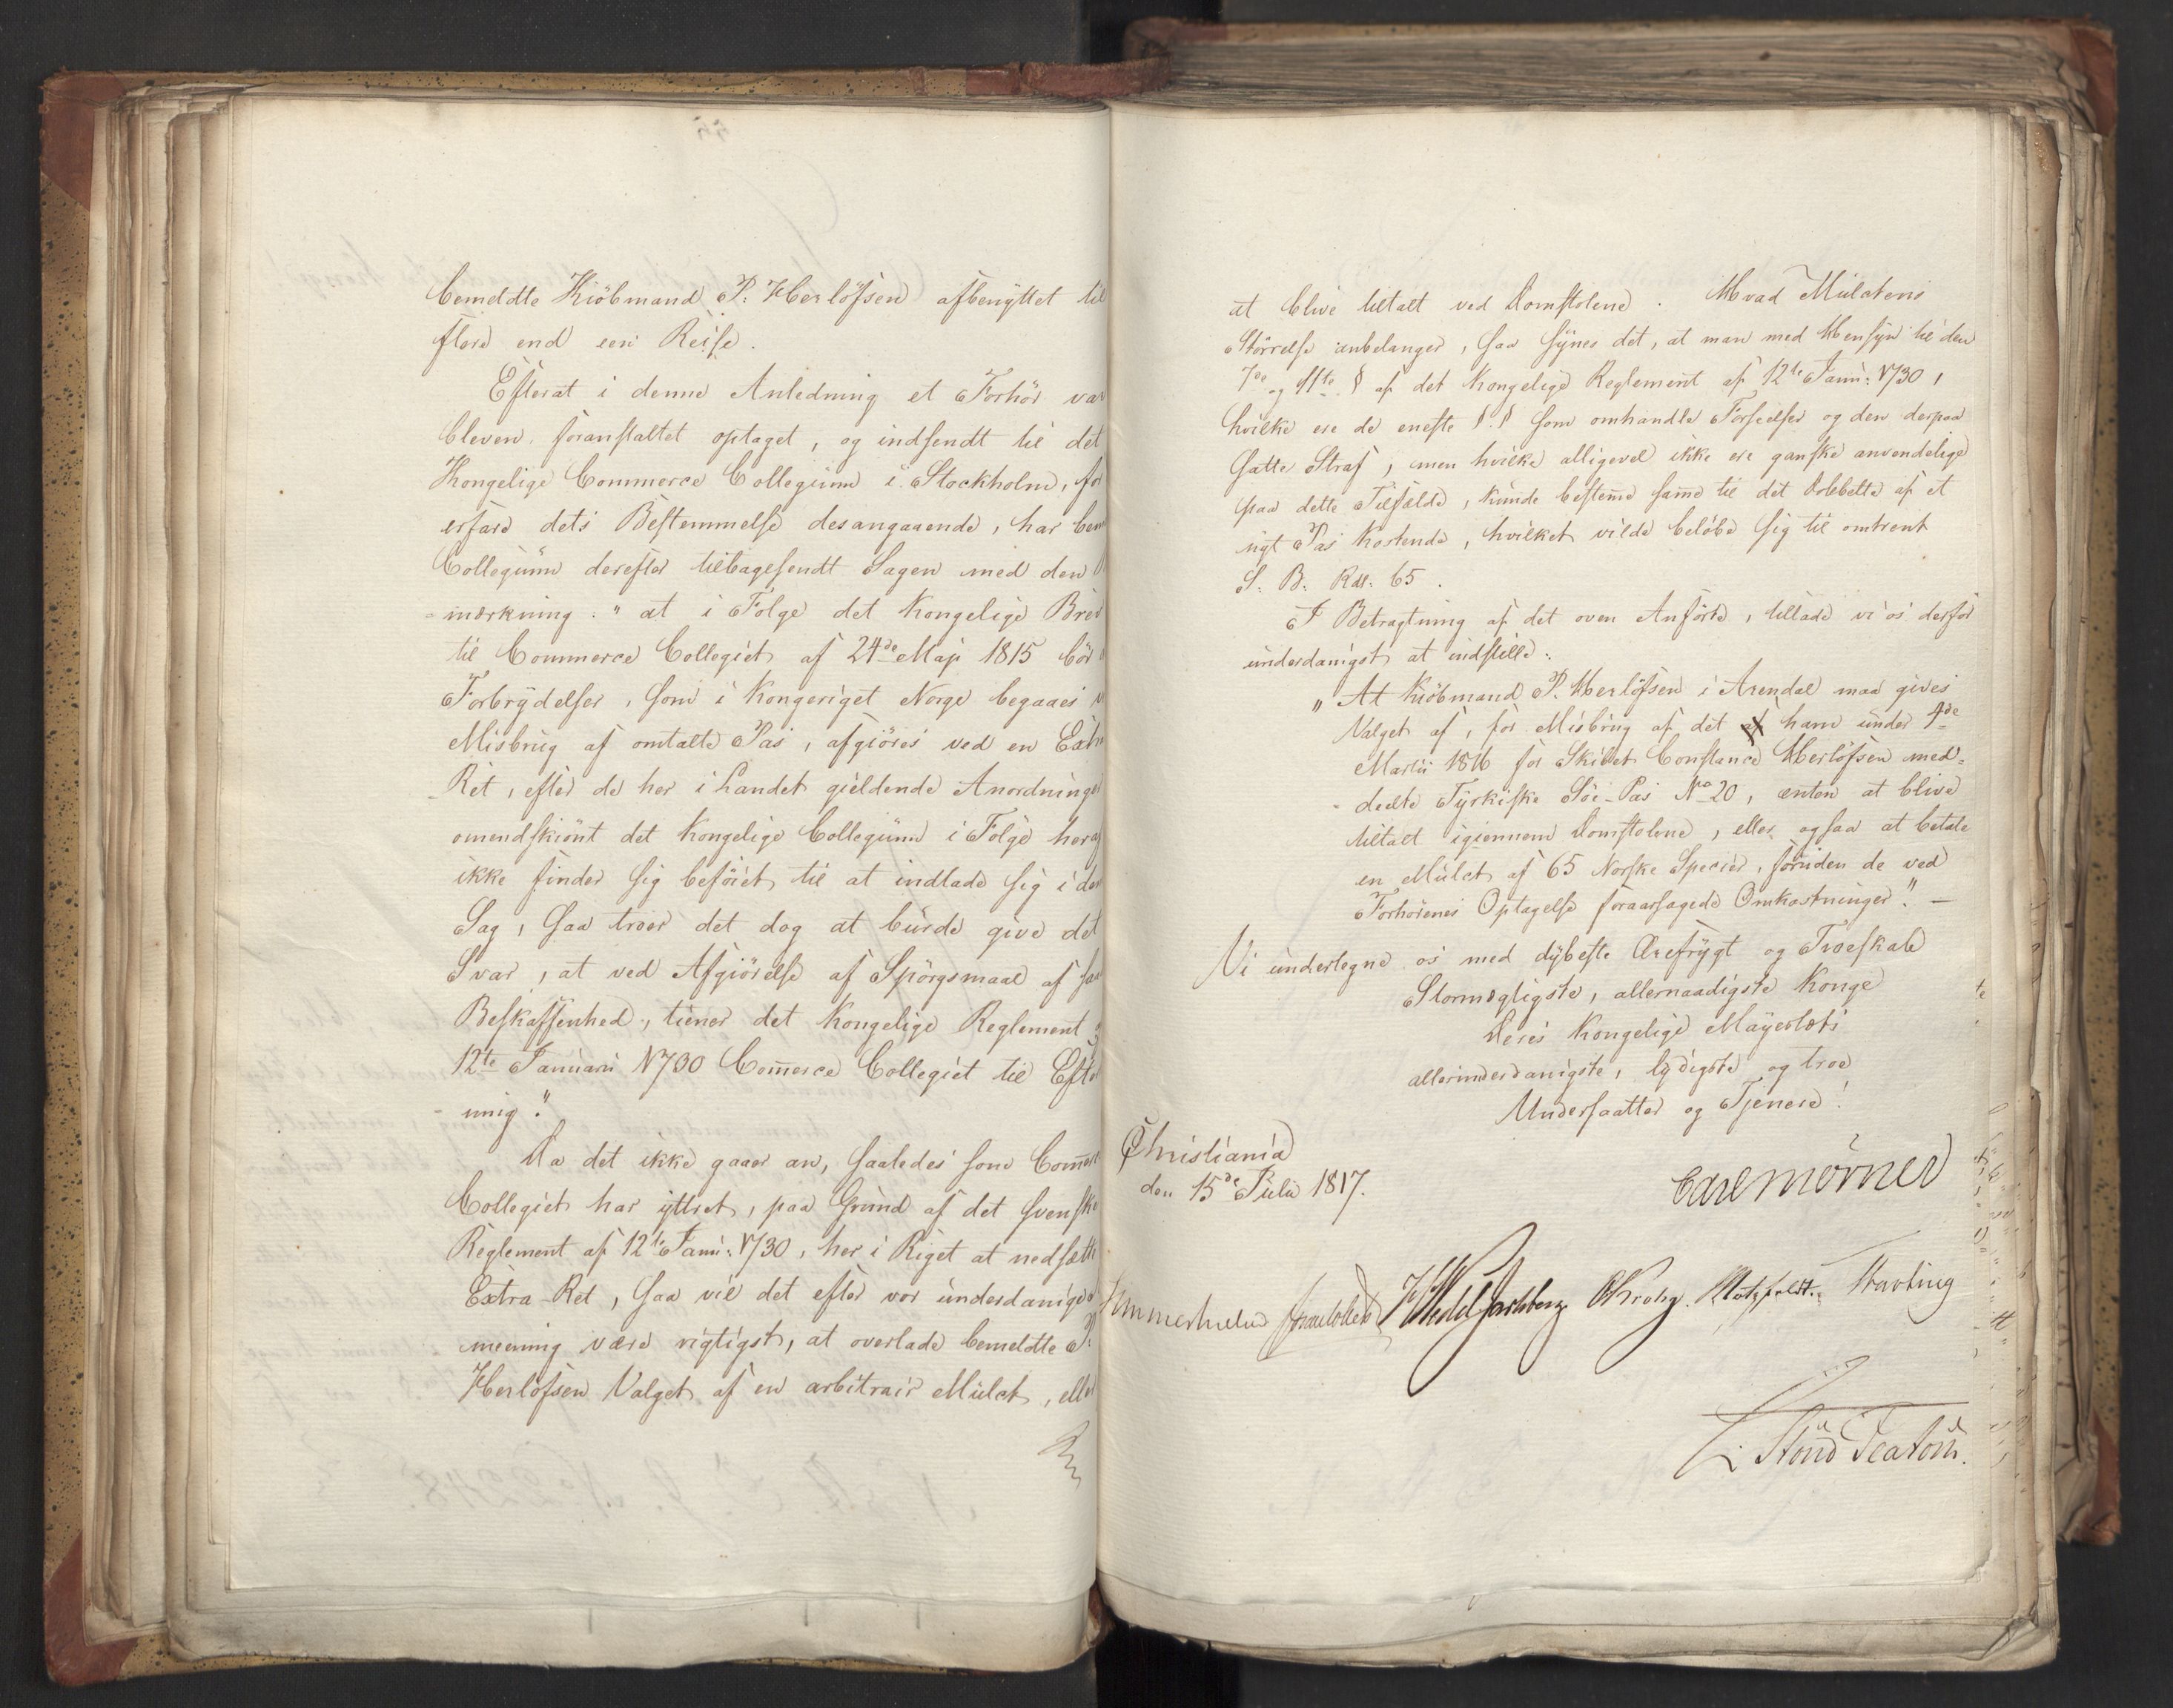 bemeldte Kiöbmand P: Herlöfsen afbenyttet til
flere end een Reise.
Efterat i denne Anledning et Forhör var
bleven foranstaltet optaget, og indsendt til det
Kongelige Commerce Collegium i Stockholm, for
erfare dets Bestemmelse desangaaende, har bem
Collegium derefter tilbagesendt Sagen med den
-mærkning: "at i Fölge det Kongelige Brev
til Commerce Collegiet af 24de Maji 1815 bör
Forbrydelser, som i Kongeriget Norge begaaes
Misbrug af omtalte Pas, afgiöres ved en Extra
-Ret, efter de her i Landet gieldende Anordninger
omendskiönt det Kongelige Collegium i Fölge heraf
ikke finder sig beföiet til at indlade sig i den
Sag, saa troer det dog at burde give det
Svar, at ved Afgiörelse af Spörgsmaal af saa
Beskaffenhed, tiener det Kongelige Reglement
12te Januari 1730 Commerce Collegiet til Efter
-nig."
Da det ikke gaaer an, saaledes som Commerce
Collegiet har yttret, paa Grund af det svenske
Reglement af 12te Janu: 1730, her i Riget at nedsætte
Extra-Ret, saa vil det efter vor underdanigste
meening være rigtigst, at overlade bemeldte P.
Herlöfsen Valget af en arbitrair Mulct, eller
at blive tiltalt ved Domstolene. Hvad Mulctens
Störrelse anbelanger, saa synes det, at man med Hensyn til den
7de og 11te § af det Kongelige Reglement af 12te Janu: 1730,
hvilke ere de eneste §.§ som omhandle Forseelser og den derpaa
satte Straf, men hvilke alligevel ikke ere ganske anvendelige
paa dette Tilfælde, kunde bestemme samme til det Dobbelte af et
nyt Pas Kostende, hvilket vilde belöbe sig til omtrent
S: B: Rdl: 65.
I Betragtning af det oven Anförte, tillade vi os derfor
underdanigst at indstille:
"At Kiöbmand P. Herlöfsen i Arendal maa gives
Valget af, for Misbrug af det af ham under 4de
Martii 1816 for Skibet Constance Herlöfsen med-
-deelte Tyrkiske Söe-Pas No 20, enten at blive
tiltalt igiennem Domstolene, eller ogsaa at betale
en Mulct af 65 Norske Species, foruden de ved
Forhörenes Optagelse foraarsagede Omkostninger". -
Vi underlegne os med dybeste Ærefrygt og Troeskab
Stormægtigste, allernaadigste Konge
Deres Kongelige Mayestæts
allerunderdanigste, lydigste og troe
Undersaatter og Tjenere!
Christiania
den 15de Julii 1817.
Carl Mörner
Sommerhielm HWedel Jarlsberg CKrohg. Motzfeldt. Harbring